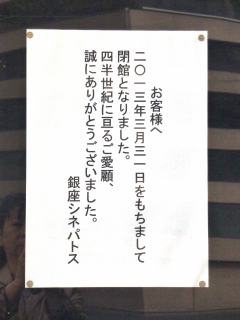 お客様へ
二〇一三年三月三一日をもちまして
閉館となりました。
四半世紀に亘るご愛顧、
誠にありがとうございました。
銀座シネパトス